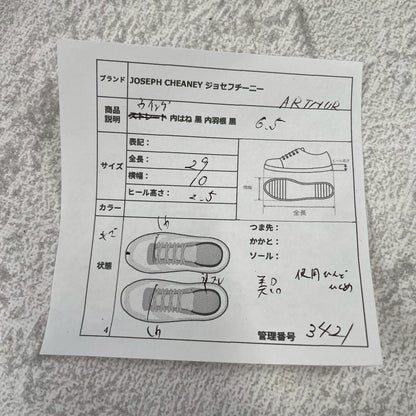 ブランド JOSEPH CHEANEY ジョセフチーニー
ARTHUR
ウイング
商品説明 ストレート 内はね 黒 内羽根 黒 6.5
表記：
サイズ 全長： 29
横幅： 10
ヒール高さ： 2.5
ヒール高さ
横幅
全長
カラー
つま先：
かかと：
ソール：
状態
美品
使用ひんど
管理番号 3421
4